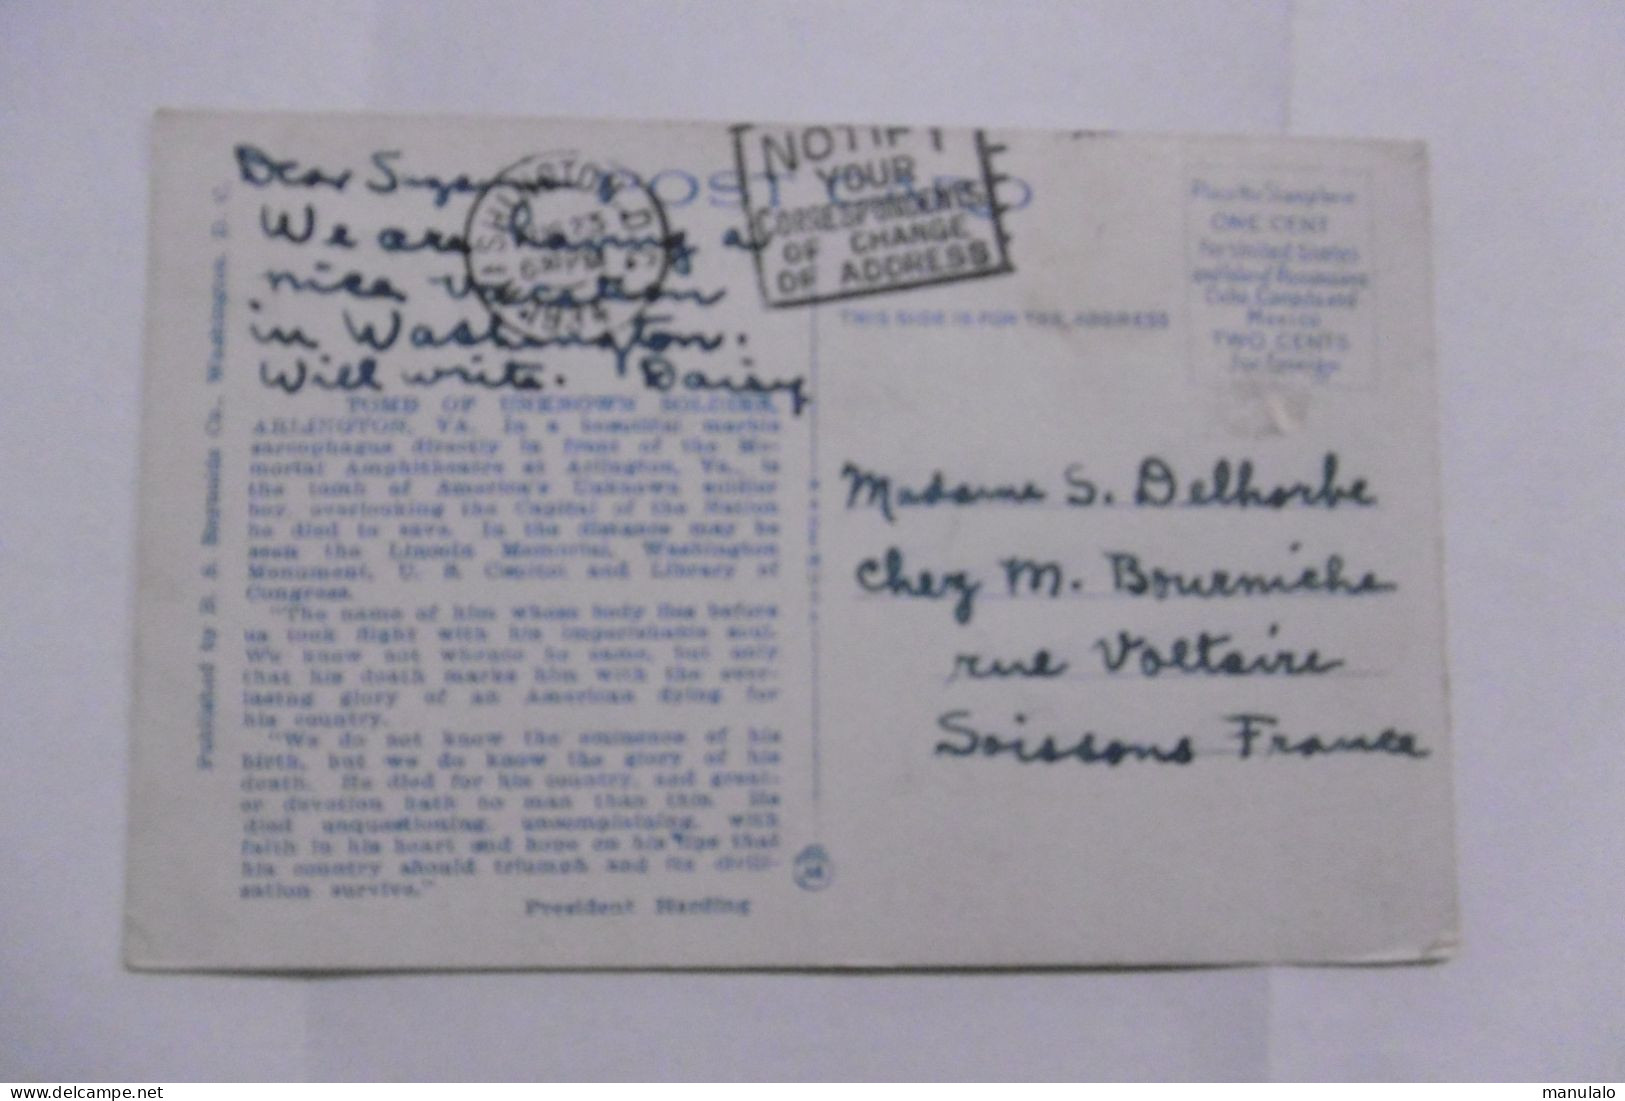 Dear Suzanne,
We are having a
nice vacation
in Washington.
Will write. Daisy
POST CARD
NOTIFY
YOUR
CORRESPONDENTS
OF CHANGE
OF ADDRESS
Place the Stamp here
ONE CENT
For United States
and Island Possessions
Cuba, Canada and
Mexico
TWO CENTS
For Foreign
THIS SIDE IS FOR THE ADDRESS
Madame S. Delhorbe
chez M. Bourniche
rue Voltaire
Soissons France
TOMB OF UNKNOWN SOLDIER,
ARLINGTON, VA. In a beautiful marble
sarcophagus directly in front of the Me-
morial Amphitheatre at Arlington, Va., is
the tomb of America's Unknown soldier
boy, overlooking the Capital of the Nation
he died to save. In the distance may be
seen the Lincoln Memorial, Washington
Monument, U. S. Capitol and Library of
Congress.
"The name of him whose body lies before
us took flight with his imperishable soul.
We know not whence he came, but only
that his death marks him with the ever-
lasting glory of an American dying for
his country.
"We do not know the eminence of his
birth, but we do know the glory of his
death. He died for his country, and great-
er devotion hath no man than this. He
died unquestioning, uncomplaining, with
faith in his heart and hope on his lips that
his country should triumph and its civili-
zation survive."
President Harding
Published by B. S. Reynolds Co., Washington, D. C.
delcampe.net
manulalo